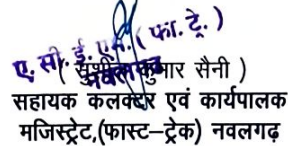 ए. सी. ई. एम. ( फा. ट्रे. )
नवलगढ़
( सुशील कुमार सैनी )
सहायक कलक्टर एवं कार्यपालक
मजिस्ट्रेट,(फास्ट–ट्रेक) नवलगढ़